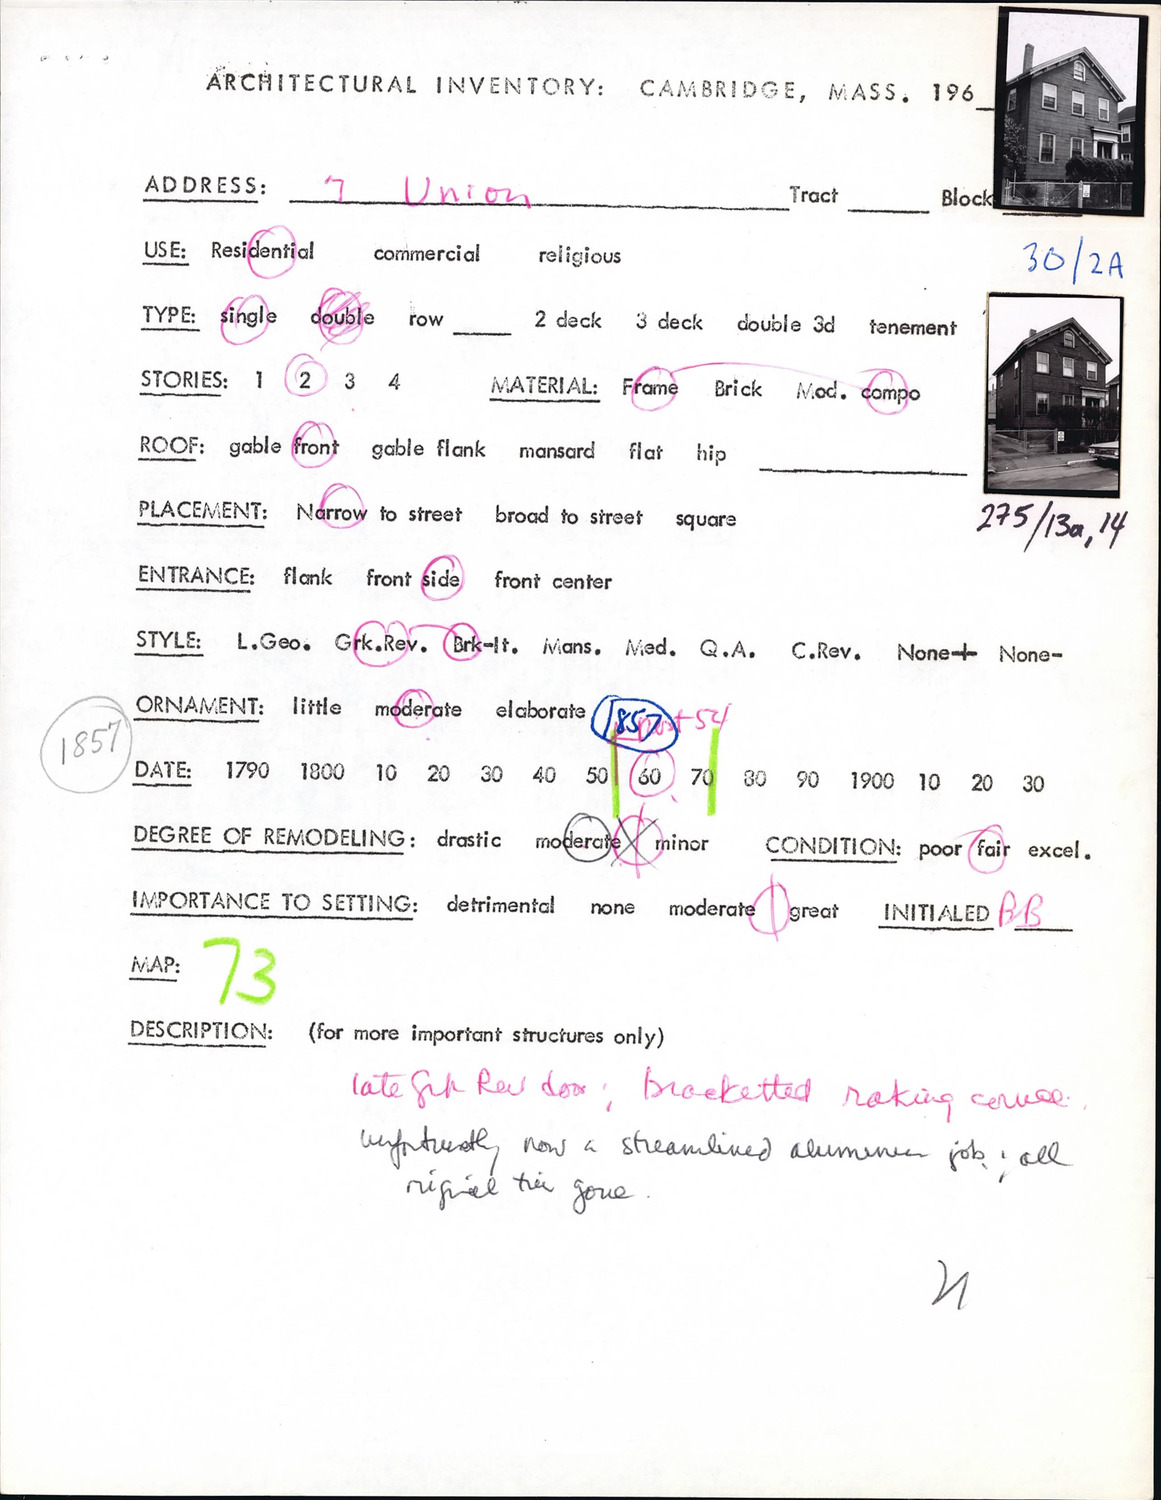 ARCHITECTURAL INVENTORY: CAMBRIDGE, MASS. 196_
ADDRESS: 7 Union Tract Block
30/2A
USE: Residential commercial religious
TYPE: single double row 2 deck 3 deck double 3d tenement
STORIES: 1 2 3 4 MATERIAL: Frame Brick Mod. compo
ROOF: gable front gable flank mansard flat hip
275/13a, 14
PLACEMENT: Narrow to street broad to street square
ENTRANCE: flank front side front center
STYLE: L.Geo. Grk.Rev. Brk-It. Mans. Med. Q.A. C.Rev. None+ None-
ORNAMENT: little moderate elaborate 1857 post 54
1857
DATE: 1790 1800 10 20 30 40 50 60 70 80 90 1900 10 20 30
DEGREE OF REMODELING: drastic moderate minor CONDITION: poor fair excel.
IMPORTANCE TO SETTING: detrimental none moderate great INITIALED BB
MAP: 73
DESCRIPTION: (for more important structures only)
late Grk Rev door; bracketted raking cornice.
Unfortunately now a streamlined aluminum job; all
original trim gone.